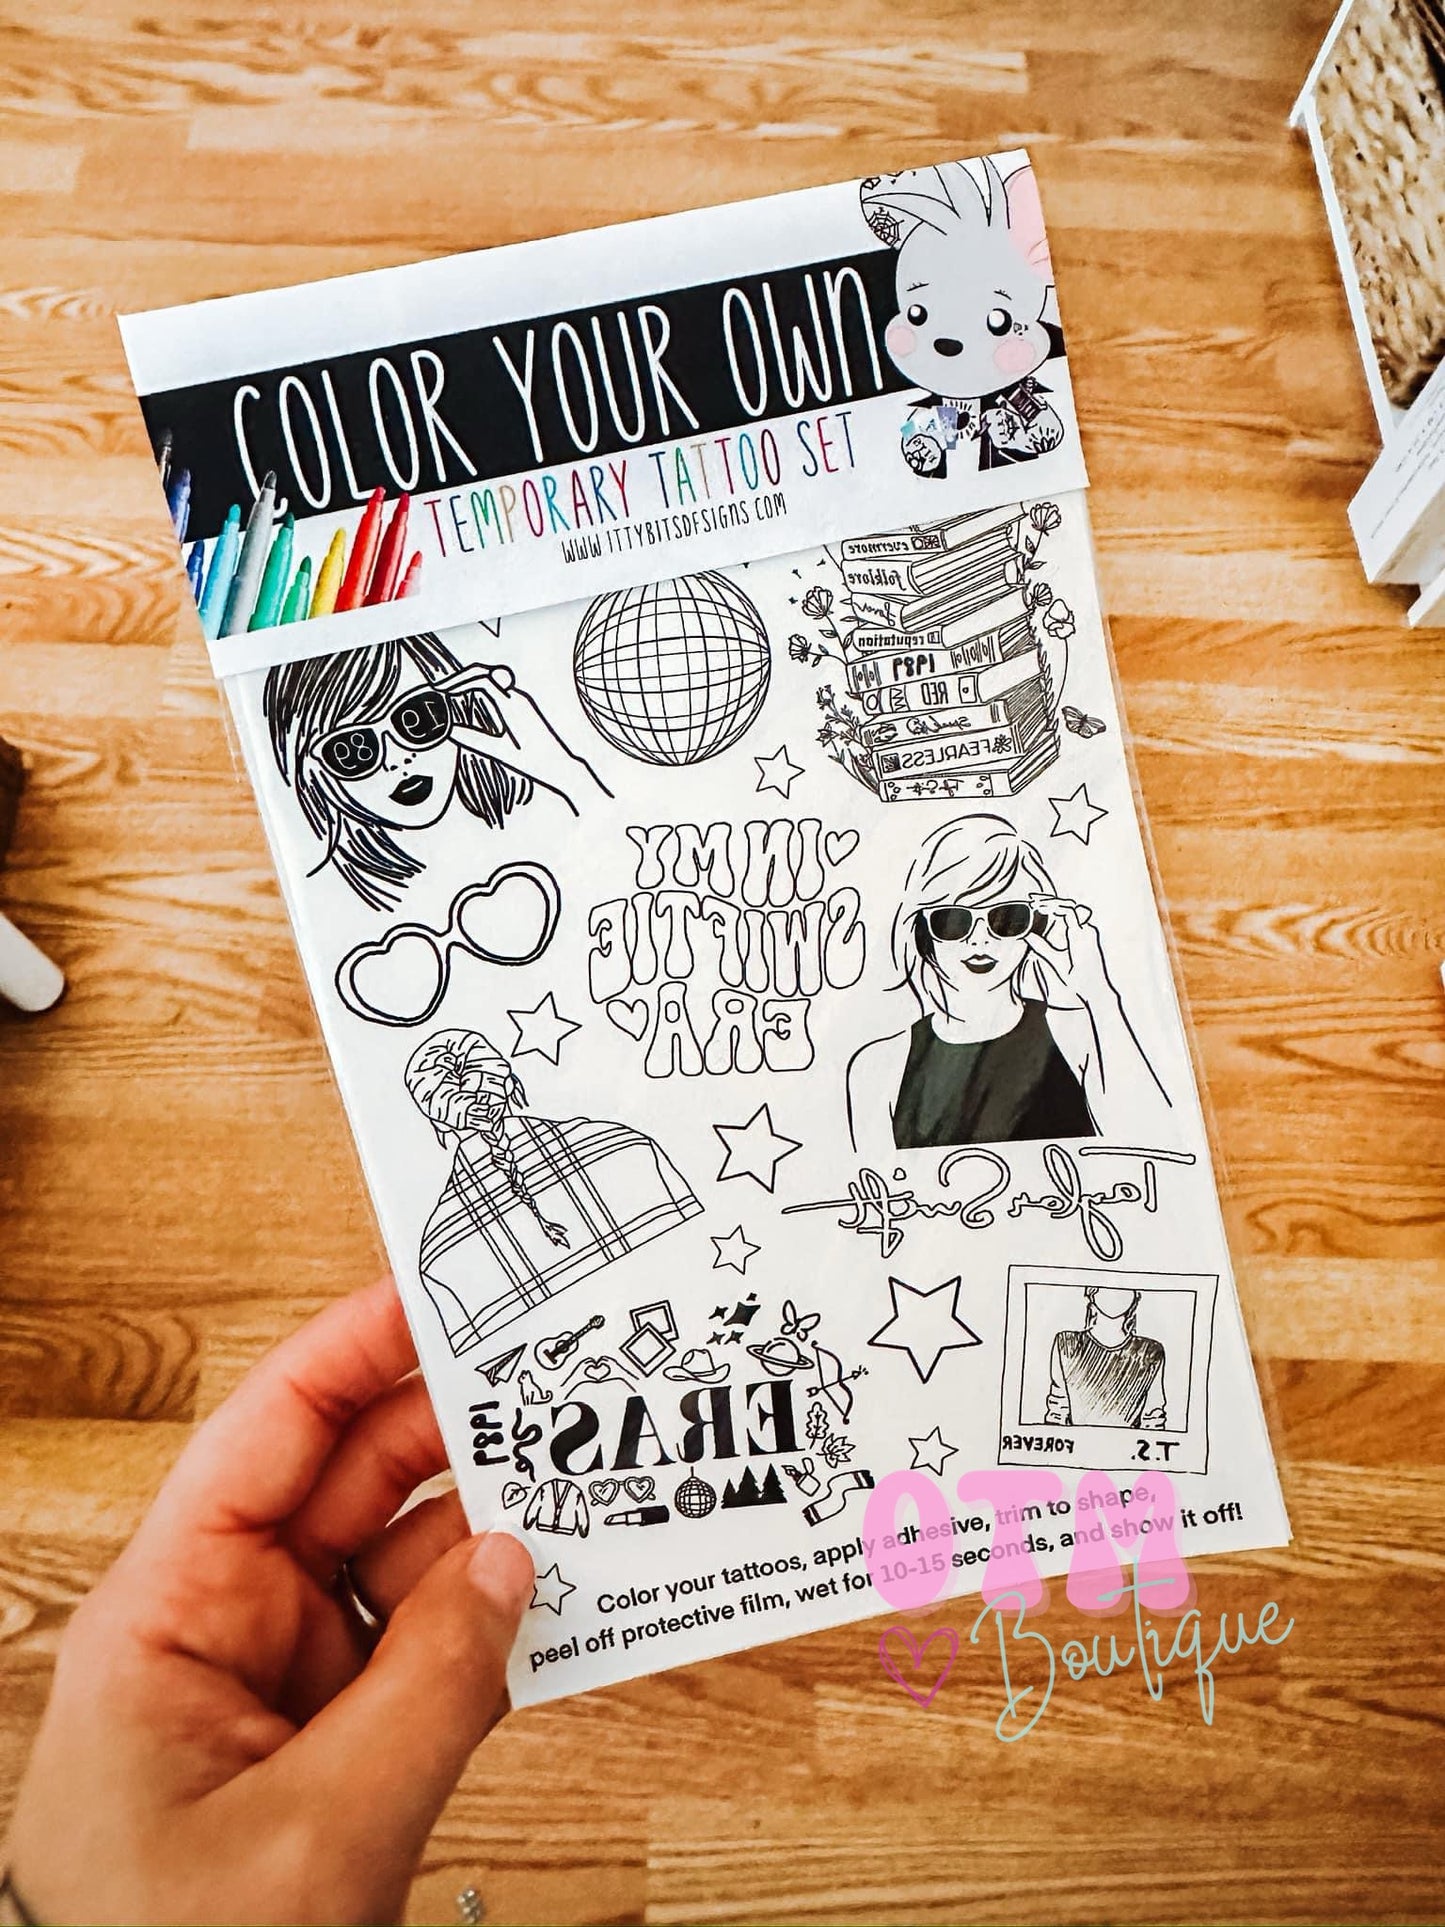 COLOR YOUR OWN
TEMPORARY TATTOO SET
WWW.ITTYBITSDESIGNS.COM
evermore
folklore
Lover
reputation
1989
RED
Speak Now
FEARLESS
19
89
IN MY
SWIFTIE
ERA
Taylor Swift
1989
ERAS
T.S. FOREVER
Color your tattoos, apply adhesive, trim to shape,
peel off protective film, wet for 10-15 seconds, and show it off!
OTM
Boutique